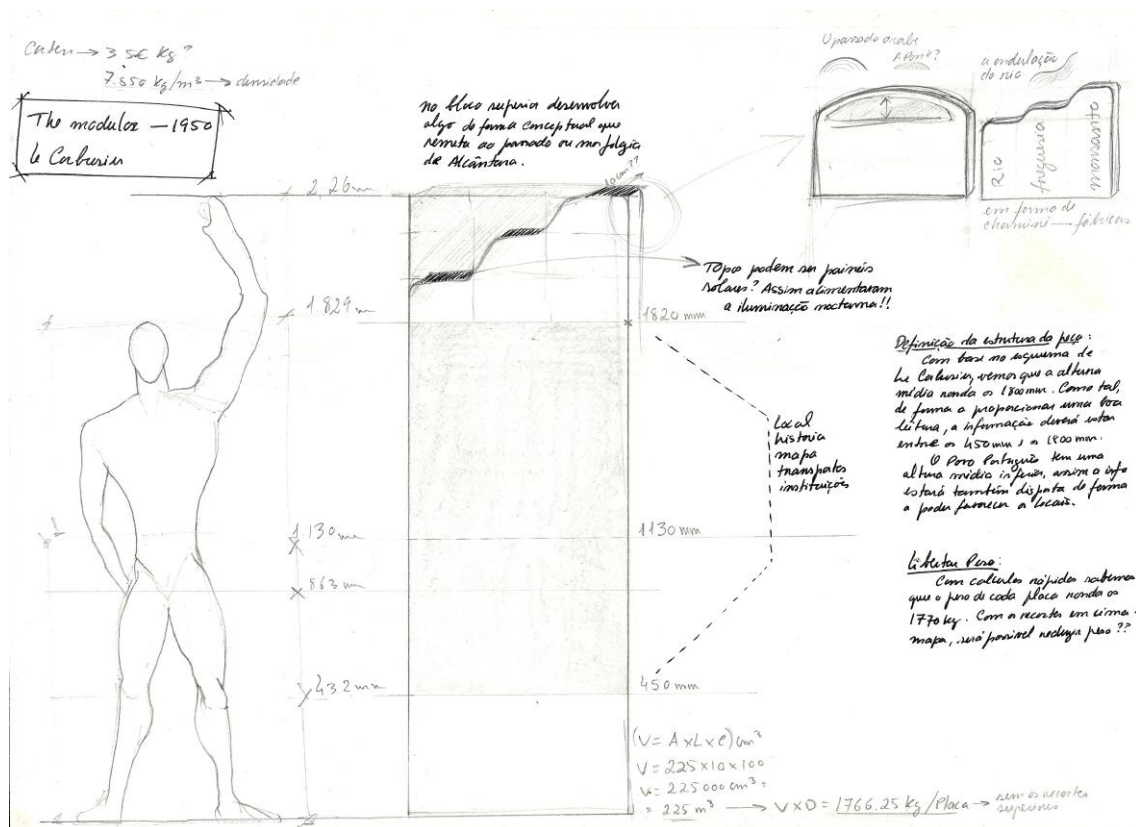 Corten → 3.5€ Kg?
7.850 kg/m³ → densidade
The modulor — 1950
le Corbusier
no bloco superior desenvolver
algo de forma conceptual que
remeta ao passado ou morfologia
de Alcântara.
O passado árabe
A Ponte?
a ondulação
do rio
Rio
freguesia
monsanto
em forma de
chaminé — fábricas
10 cm??
2,26m
1829m
1130mm
863mm
432mm
Topos podem ser painéis
solares? Assim alimentaram
a iluminação nocturna!!
1820 mm
1130mm
450mm
Local
historia
mapa
transportes
instituições
Definição da estrutura da peça:
Com base no esquema de
Le Corbusier, vemos que a altura
média ronda os 1800mm. Como tal,
de forma a proporcionar uma boa
leitura, a informação deverá estar
entre os 450mm e os 1800mm.
O Povo Português tem uma
altura média inferior, assim a info
estará também disposta de forma
a poder favorecer os locais.
Libertar Peso:
Com calculos rápidos sabemos
que o peso de cada placa ronda os
1770 kg. Com os recortes em cima e
mapa, será possivel reduzir peso??
(V = A x L x C) cm³
V = 225 x 10 x 100
V = 225 000 cm³ =
= 225 m³ → V x D = 1766.25 kg / Placa → sem os recortes
superiores